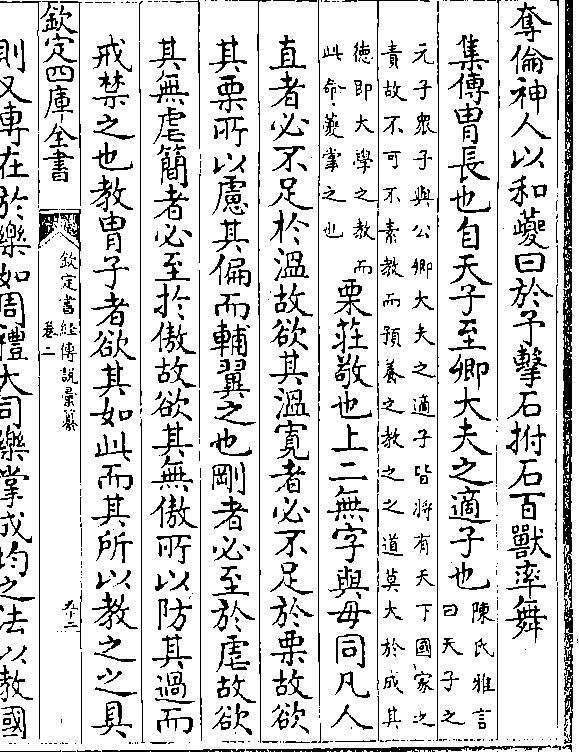 奪倫神人以和夔曰於予擊石拊石百獸率舞
集傳胄長也自天子至卿大夫之適子也
陳氏雅言
曰天子之
元子衆子與公卿大夫之適子皆將有天下國家之
責故不可不素教而預養之教之之道莫大於成其
德即大學之教而
此命夔掌之也
栗莊敬也上二無字與毋同凡人
直者必不足於溫故欲其溫寬者必不足於栗故欲
其栗所以慮其偏而輔翼之也剛者必至於虐故欲
其無虐簡者必至於傲故欲其無傲所以防其過而
戒禁之也教胄子者欲其如此而其所以教之之具
欽定四庫全書
欽定書經傳說彙纂
卷二
則又專在於樂如周禮大司樂掌成均之法以教國